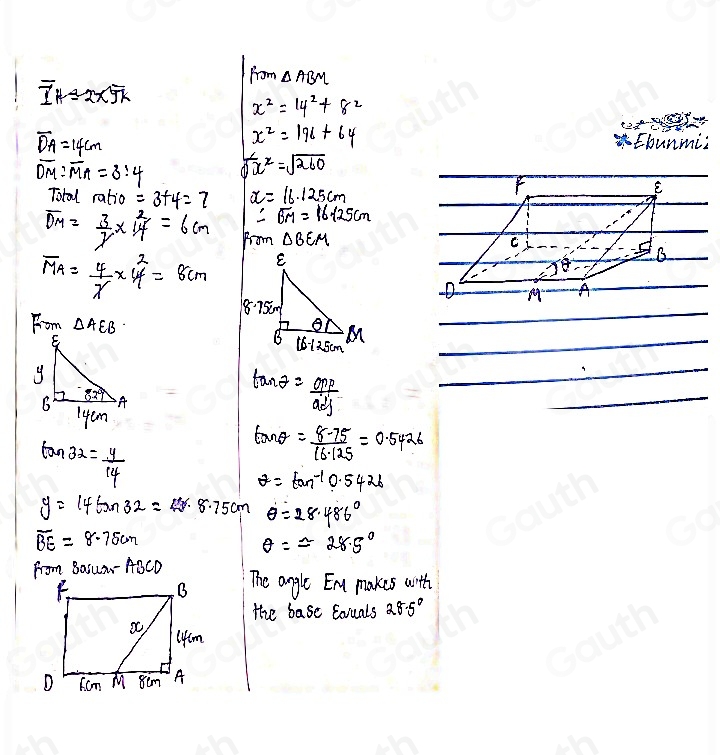 D̅A̅ = 14cm
D̅M̅ : M̅A̅ = 3:4
Total ratio = 3+4 = 7
D̅M̅ = 3/7 × 14 2 = 6cm
M̅A̅ = 4/7 × 14 2 = 8cm
From ΔAEB
E
y
32°
B
A
14cm
tan 32 = y/14
y = 14 tan 32 = 8.75cm
B̅E̅ = 8.75cm
from Sauar ABCD
F
B
x
14cm
D
6cm
M
8cm
A
From ΔABM
x² = 14² + 8²
x² = 196 + 64
√x² = √260
x = 16.125cm
∴ B̅M̅ = 16.125cm
From ΔBEM
E
8.75cm
θ
B
M
16.125cm
tanθ = opp/adj
tanθ = 8.75/16.125 = 0.5426
θ = tan⁻¹ 0.5426
θ = 28.486°
θ = ≃ 28.5°
The angle EM makes with
the base Eauals 28.5°
Ebunmi
F
E
C
B
θ
D
M
A
Gauth